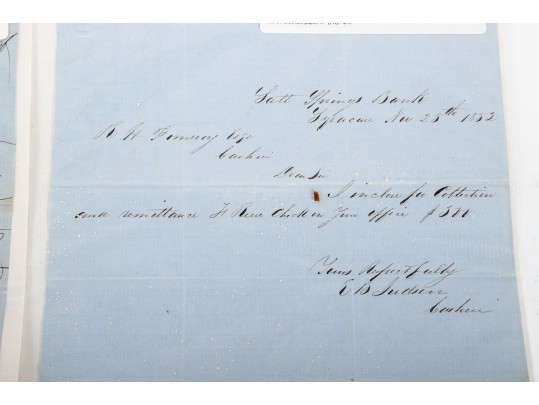 Salt Springs Bank
Syracuse Nov 25th 1852
R H Esqr
Cashier
Dear Sir
I inclose for Collection
and remittance Check on Your office $500
Yours Respectfully
E B Judson
Cashier